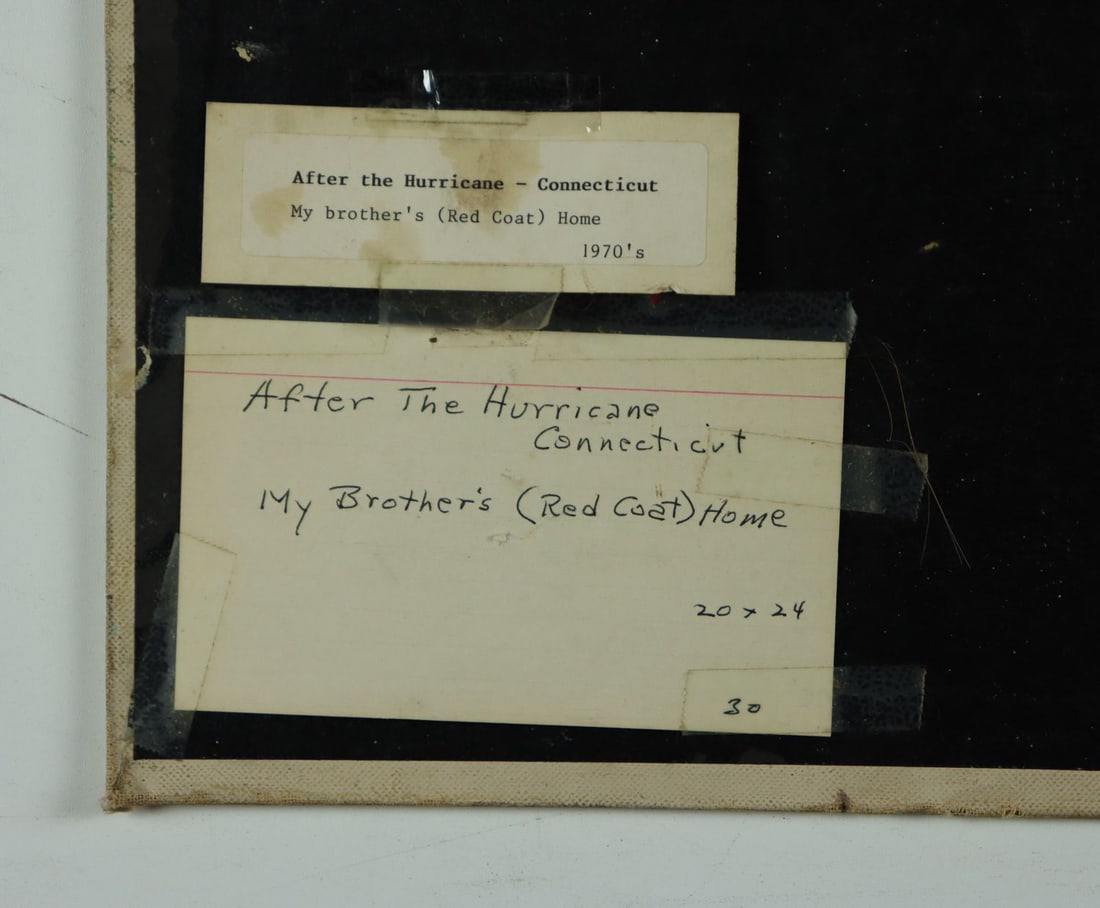 After the Hurricane - Connecticut
My brother's (Red Coat) Home
1970's
After The Hurricane
Connecticut
My Brother's (Red Coat) Home
20 x 24
30